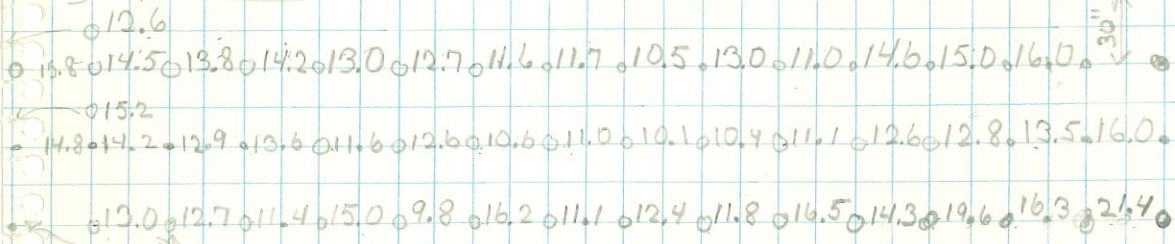 12.6
15.8 14.5 13.8 14.2 13.0 12.7 11.6 11.7 10.5 13.0 11.0 14.6 15.0 16.0 30"
15.2
14.8 14.2 12.9 13.6 11.6 12.6 10.6 11.0 10.1 10.4 11.1 12.6 12.8 13.5 16.0
13.0 12.7 11.4 15.0 9.8 16.2 11.1 12.4 11.8 16.5 14.3 19.6 16.3 21.4